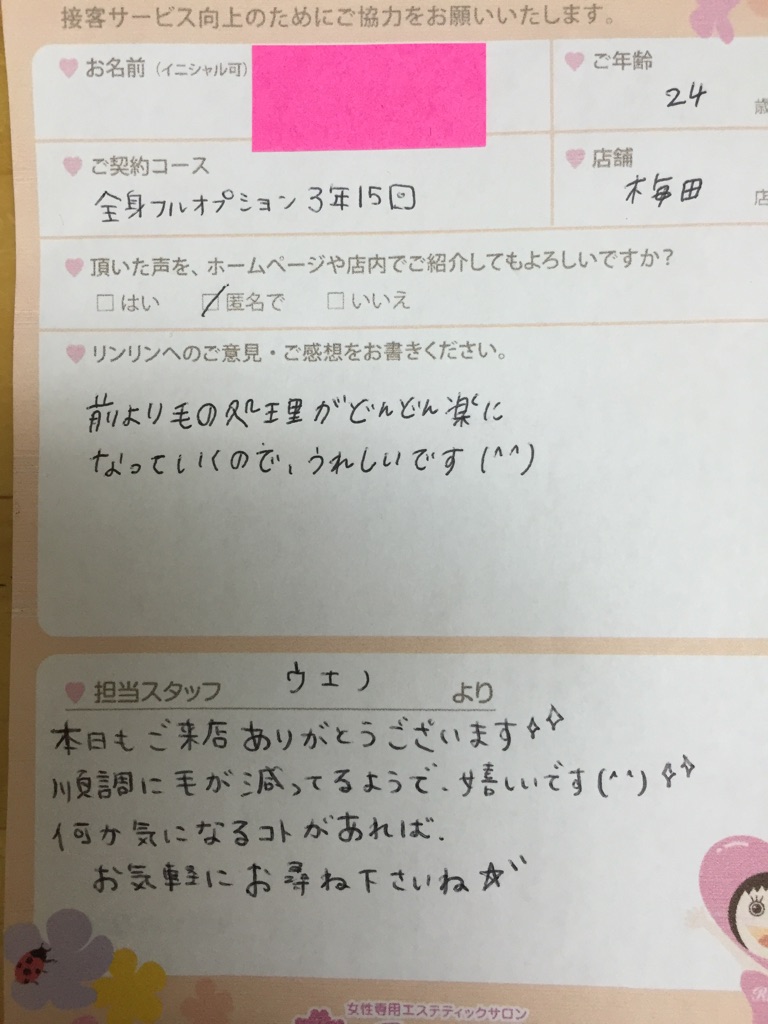 接客サービス向上のためにご協力をお願いいたします。
お名前（イニシャル可）
ご年齢
24 歳
ご契約コース
全身フルオプション3年15回
店舗
梅田 店
頂いた声を、ホームページや店内でご紹介してもよろしいですか？
□はい ☑匿名で □いいえ
リンリンへのご意見・ご感想をお書きください。
前より毛の処理がどんどん楽に
なっていくので、うれしいです(^^)
担当スタッフ ウエノ より
本日もご来店ありがとうございます✧✧
順調に毛が減ってるようで、嬉しいです(^^)✧✧
何か気になるコトがあれば、
お気軽にお尋ね下さいね☆
女性専用エステティックサロン